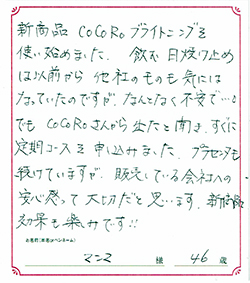 新商品 CoCoRo ブライトニングを
使い始めました。飲む日焼け止め
は以前から他社のものも気には
なっていたのですが、なんとなく不安で…。
でもCoCoRoさんから出たと聞き、すぐに
定期コースを申込みました。プラセンタも
続けていますが、販売している会社への
安心感って大切だと思います。新商品
効果も楽しみです!!
お名前(本名orペンネーム)
マンマ 様 46歳